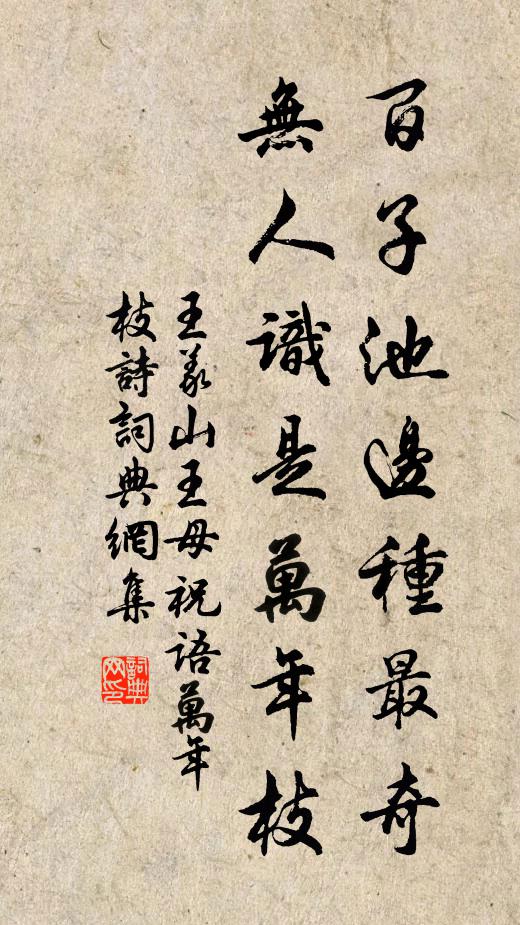 百子池邊種最奇
無人識是萬年枝
王義山王母祝語萬年
枝詩詞典網集
詞典